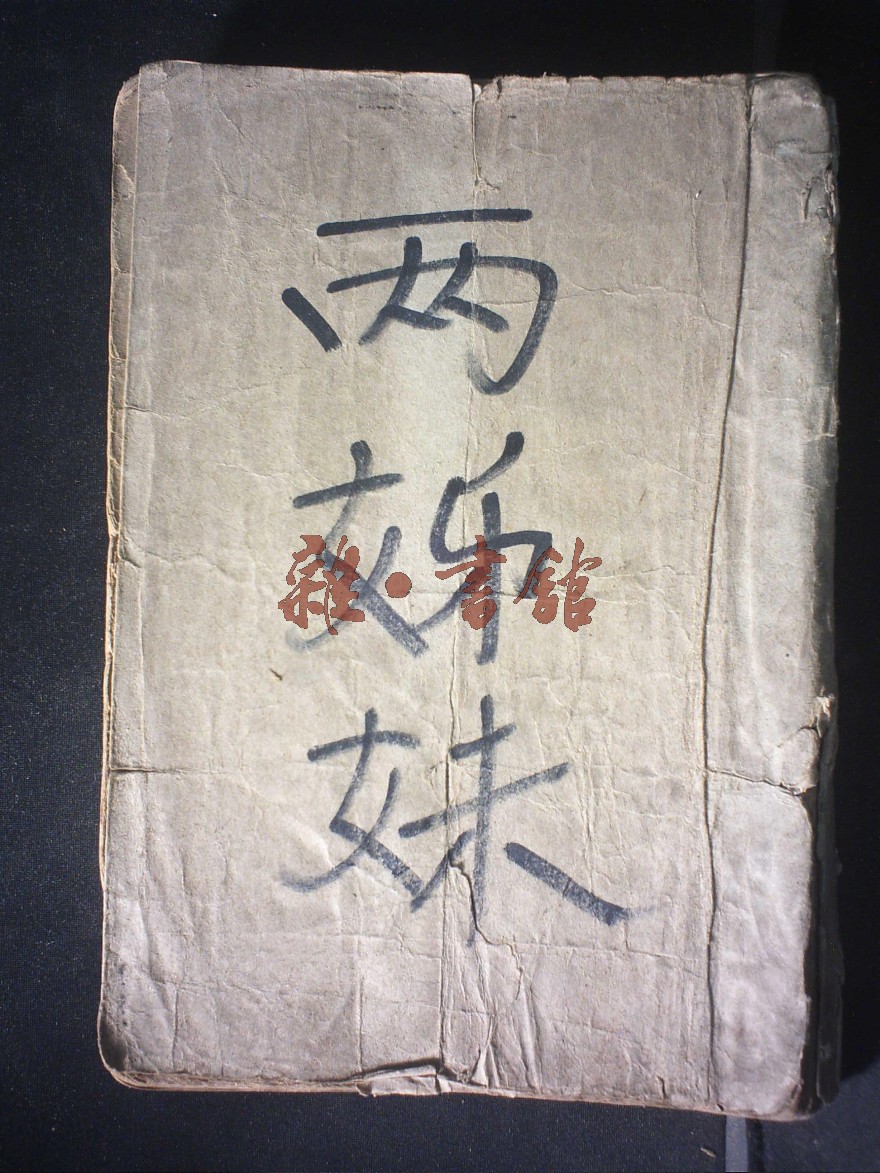 两姊妹
雜·書館